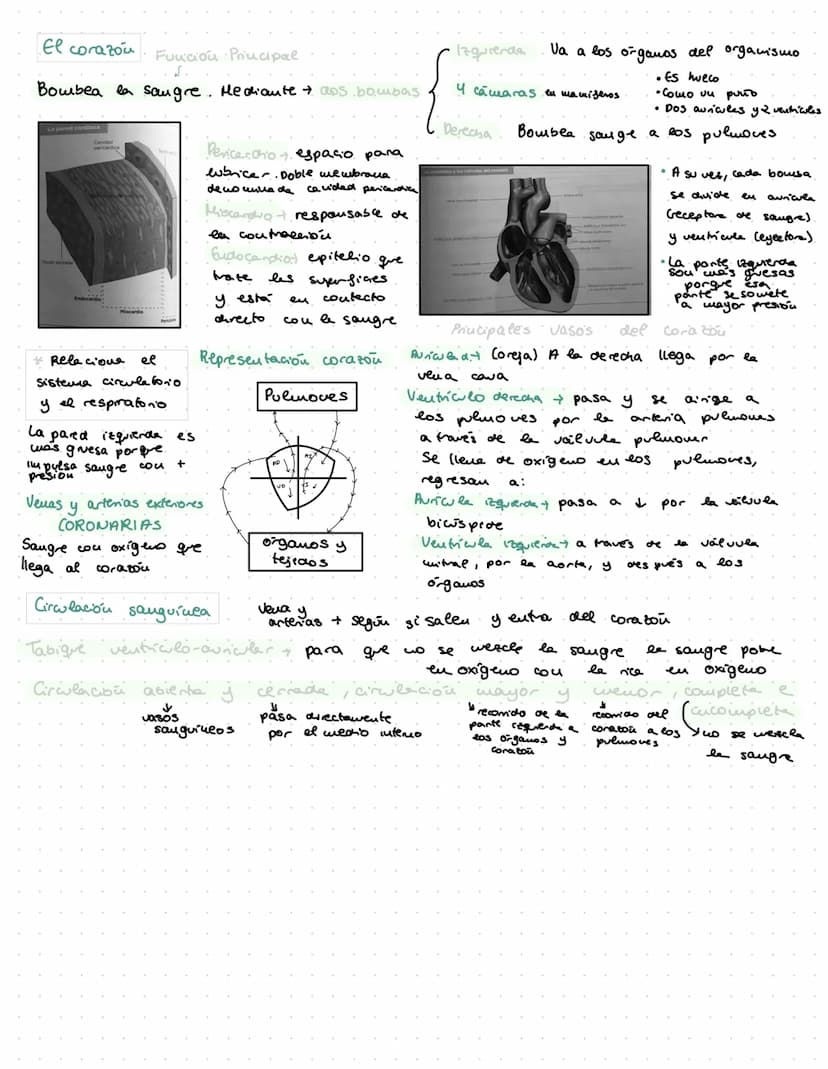 El corazón
Función Principal
Bombea la sangre. Mediante → dos bombas
Izquierda Va a los órganos del organismo
4 cámaras en mamíferos
• Es hueco
• Como un puño
• Dos aurículas y 2 ventrículos
Derecha Bombea sangre a los pulmones
Pericardio → espacio para
lubricar. Doble membrana
denominada cavidad pericardica
Miocardio → responsable de
la contracción
Endocardio → epitelio que
trate las superficies
y está en contacto
directo con la sangre
Endocardio
Miocardio
• A su vez, cada bomba
se divide en aurícula
(receptora de sangre)
y ventrículo (eyectora)
• La parte izquierda
son más guesas
porque esa
parte se somete
a mayor presión
Principales vasos del corazón
* Relaciona el
sistema circulatorio
y el respiratorio
La pared izquierda es
más gruesa porque
impulsa sangre con +
presión
Venas y arterias exteriores
CORONARIAS
Sangre con oxígeno que
llega al corazón
Representación corazón
Pulmones
órganos y
tejidos
(oreja) A la derecha llega por la
vena cava
Ventrículo derecha → pasa y se dirige a
los pulmones por la arteria pulmones
a través de la válvula pulmonar
Se llena de oxígeno en los pulmones,
regresan a:
Aurícula izquierda → pasa a ↓ por la
Ventrícula izquierda → a través de la válvula
mitral, por la aorta, y después a los
órganos
Circulación sanguínea
Vena y
arterias → según si salen y entra del corazón
Tabique ventrículo-auricular → para que no se mezcle la sangre la sangre pobre
en oxígeno con la rica en oxígeno
Circulación abierta y cerrada, circulación mayor y menor, completa e
incompleta
↓
vasos
sanguíneos
↓
pasa directamente
por el medio interno
recorrido de la
parte izquierda a
los órganos y
corazón
recorrido del
corazón a los
pulmones
no se mezcla
la sangre